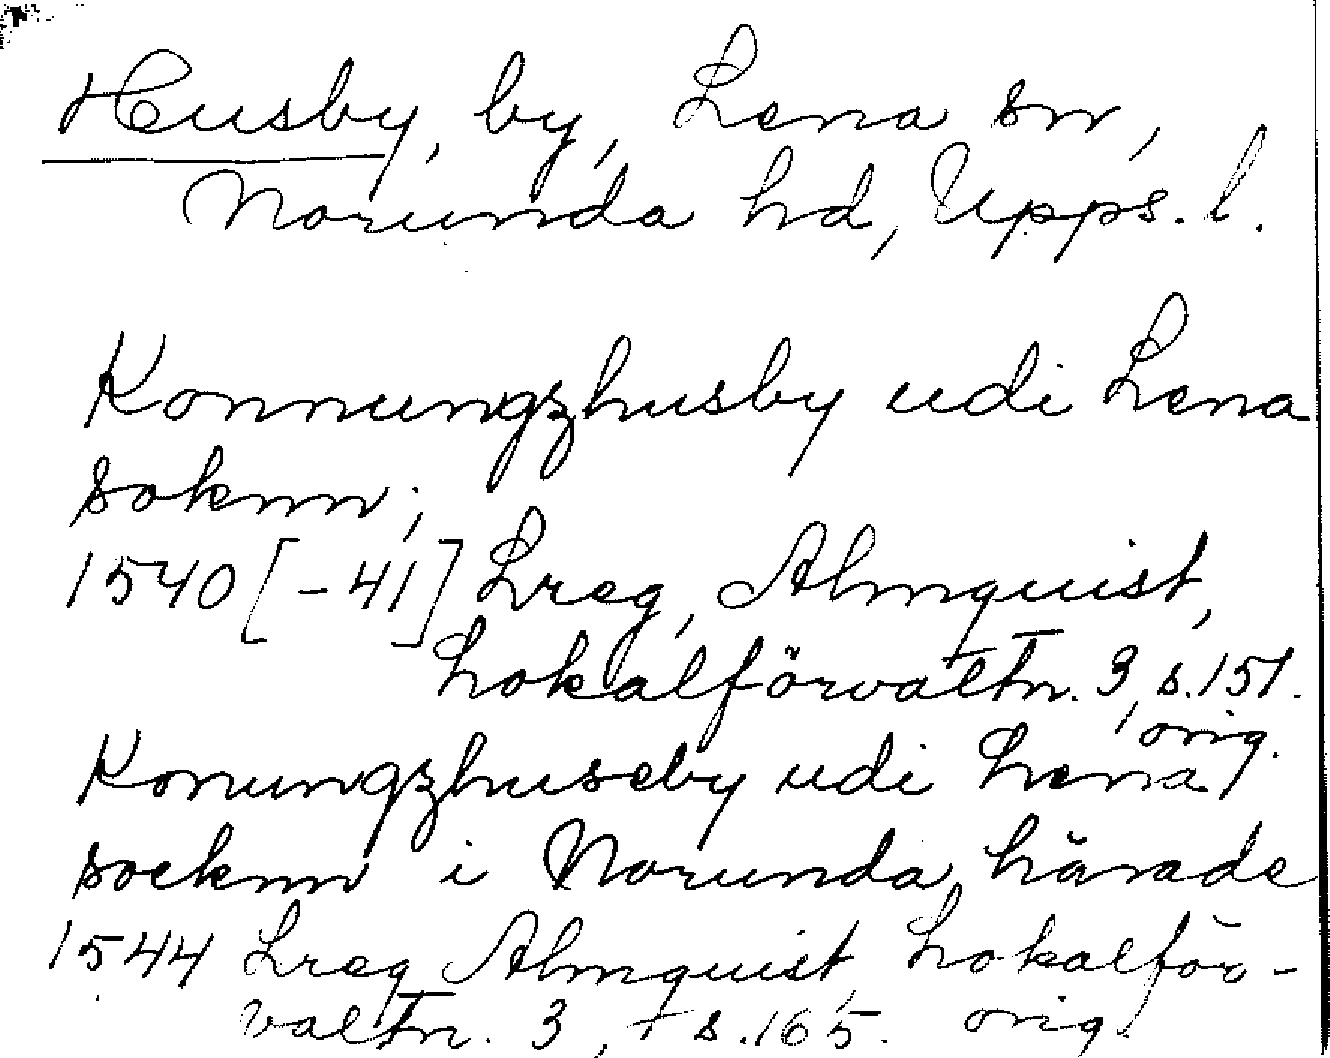 Husby, by, Lena sn,
Norunda hd, Upps. l.
Konnungzhusby udi Lena
soknn;
1540[-41] Lreg, Almquist,
Lokalförvaltn. 3, s. 151.
orig.
Konungzhuseby udi Lena
socknn i Norunda härade
1544 Lreg Almquist, Lokalför-
valtn. 3, s. 165. orig.